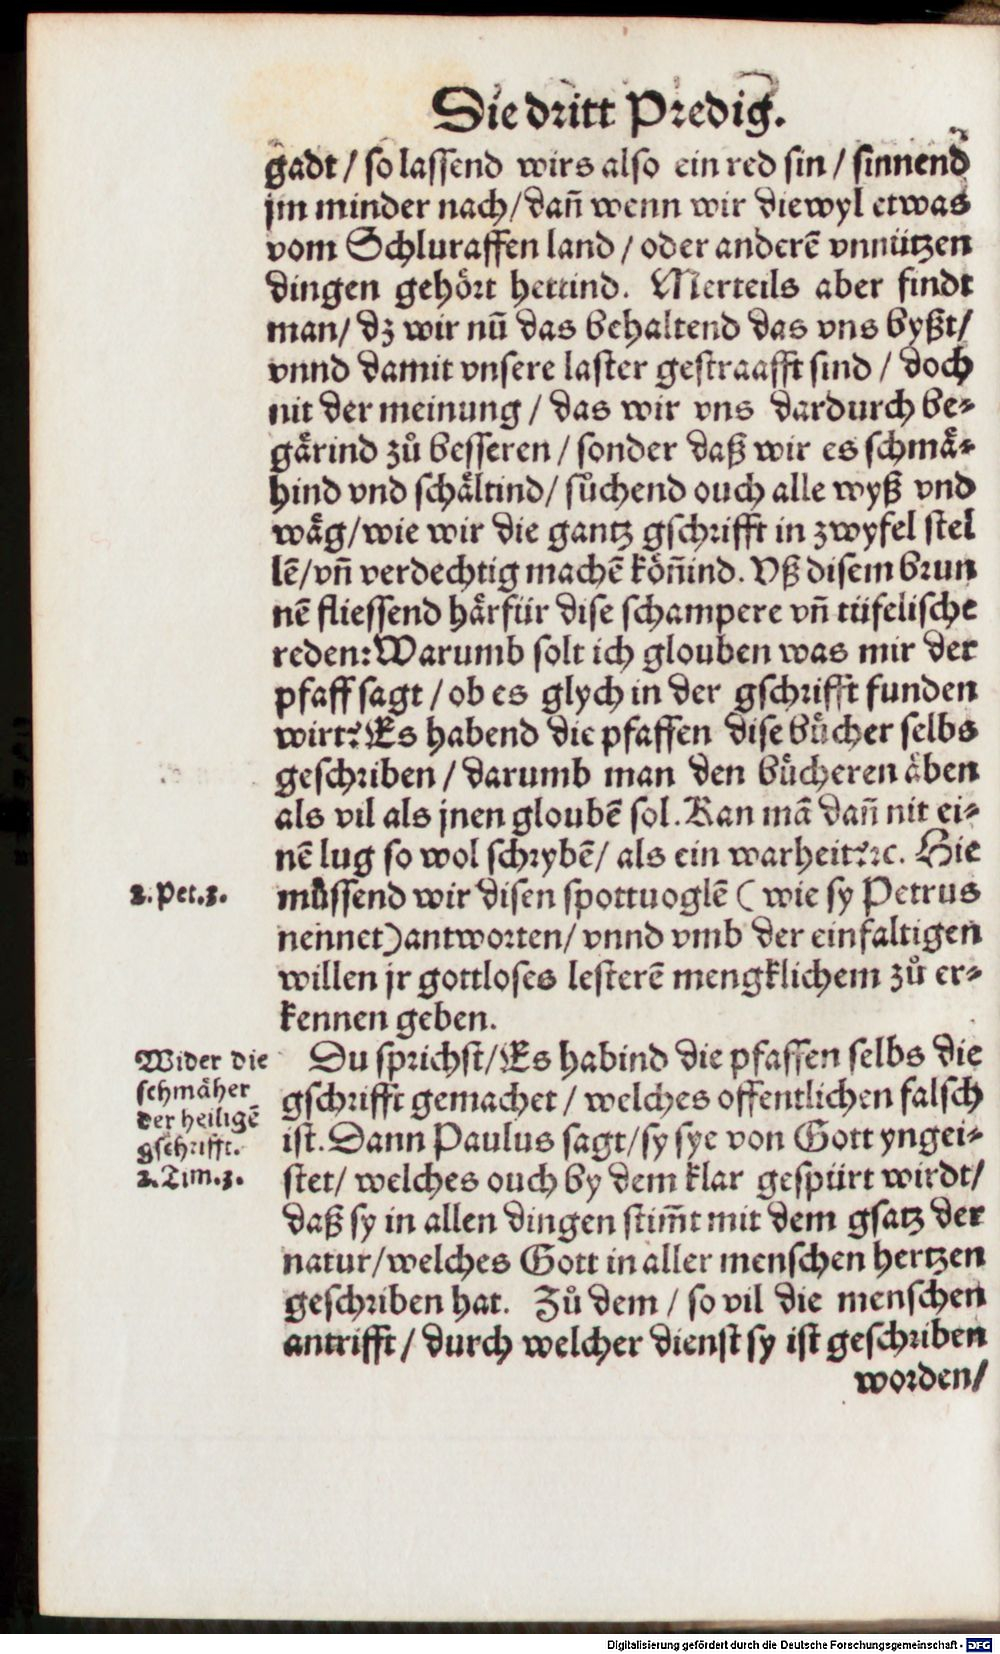 Die dritt Predig.
gadt / so lassend wirs also ein red sin / sinnend
jm minder nach / dañ wenn wir diewyl etwas
vom Schluraffen land / oder anderẽ vnnützen
dingen gehört hettind. Merteils aber findt
man / dz wir nũ das behaltend das vns byßt /
vnnd damit vnsere laster gestraafft sind / doch
nit der meinung / das wir vns dardurch be⸗
gaͤrind zuͦ besseren / sonder daß wir es schmaͤ⸗
hind vnd schaͤltind / suͦchend ouch alle wyß vnd
waͤg / wie wir die gantz gschrifft in zwyfel stel
lẽ / vñ verdechtig machẽ koͤñind. Vß disem brun
nẽ fliessend haͤrfür dise schampere vñ tüfelische
reden: Warumb solt ich glouben was mir der
pfaff sagt / ob es glych in der gschrifft funden
wirt? Es habend die pfaffen dise buͤcher selbs
geschriben / darumb man den buͤcheren aͤben
als vil als jnen gloubẽ sol. Kan mã dañ nit ei⸗
nẽ lug so wol schrybẽ / als ein warheit? ꝛc. Hie
2. Pet. 3.
muͤssend wir disen spottuoglẽ ( wie sy Petrus
nennet ) antworten / vnnd vmb der einfaltigen
willen jr gottloses lesterẽ mengklichem zuͦ er⸗
kennen geben.
Wider die
schmaͤher
der heiligẽ
gschrifft.
2. Tim. 3.
Du sprichst / Es habind die pfaffen selbs die
gschrifft gemachet / welches offentlichen falsch
ist. Dann Paulus sagt / sy sye von Gott yngei⸗
stet / welches ouch by dem klar gespürt wirdt /
daß sy in allen dingen stim̃t mit dem gsatz der
natur / welches Gott in aller menschen hertzen
geschriben hat. Zuͦ dem / so vil die menschen
antrifft / durch welcher dienst sy ist geschriben
worden /
Digitalisierung gefördert durch die Deutsche Forschungsgemeinschaft - DFG